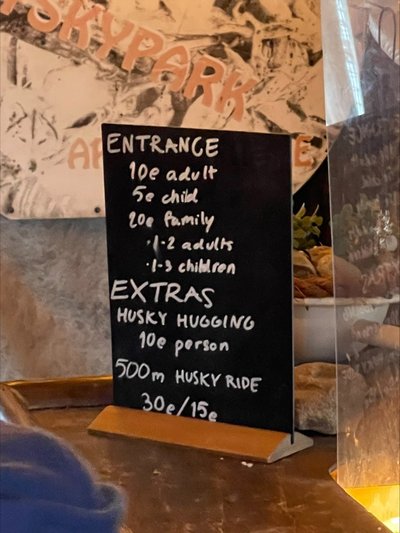 SKYPARK
ENTRANCE
10e adult
5e child
20e family
·1-2 adults
·1-3 children
EXTRAS
HUSKY HUGGING
10e person
500m HUSKY RIDE
30e/15e